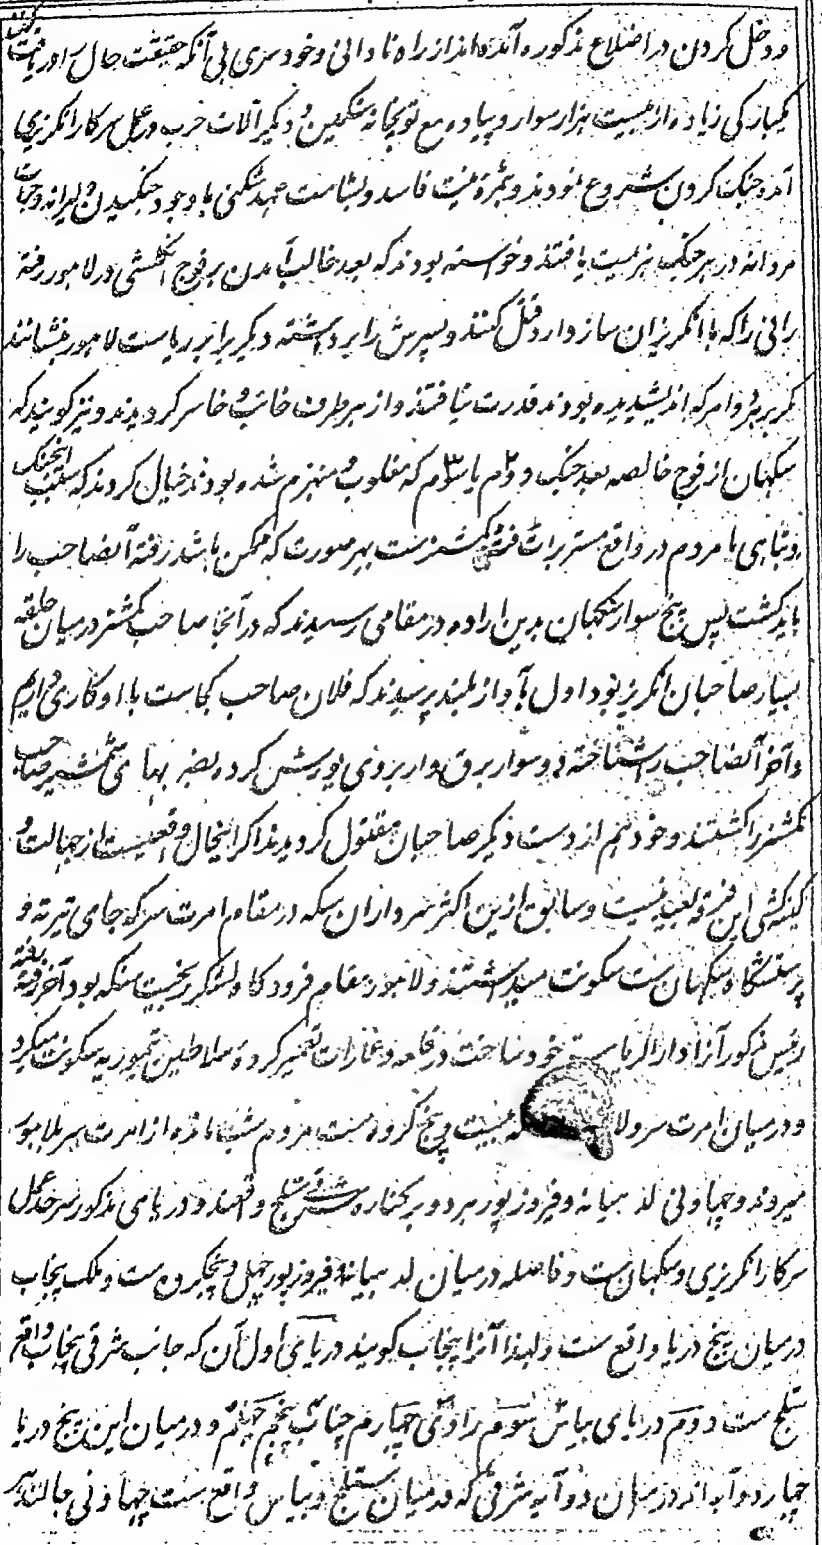 و دخل کردن در اضلاع مذکوره آمده اند از راه نادانی و خودسری بی آنکه حقیقت حال را دریافت کنند
یکبارگی زیاده از بیست هزار سوار و پیاده مع توپخانه سنگین و دیگر آلات حرب در عمل سرکار انگریزی
آمده جنگ کردن شروع نمودند و بثمره نیت فاسد و بشامت عهد شکنی با وجود جنگیدن دلیرانه و حملات
مردانه در هر جنگ هزیمت یافتند و خواسته بودند که بعد غالب آمدن بر فوج انگلشی در لاهور رفته
رانی را که با انگریزان ساز دارد قتل کنند و پسرش را برداشته دیگری را بر ریاست لاهور بنشانند
مگر بهر دو امر که اندیشیده بودند قدرت نیافتند و از هر طرف خائب و خاسر گردیدند و نیز گویند که
سکهان از فوج خالصه بعد جنگ دوم یا سوم که مغلوب و منهزم شده بودند خیال کردند که سبب اینجنگ
و تباهی ما مردم در واقع مستر براٹ فٹ کمشنر ست بهر صورت که ممکن باشد رفته آنصاحب را
باید کشت پس پنج سوار سکهان بدین اراده در مقامی رسیدند که در آنجا صاحب کمشنر درمیان حلقه
بسیار صاحبان انگریز بود اول بآواز بلند پرسیدند که فلان صاحب کجاست با او کاری داریم
و آخر آنصاحب را شناخته دو سوار برق وار بر وی یورش کرده بضربهای شمشیر صاحب
کمشنر را کشتند و خود هم از دست دیگر صاحبان مقتول گردیدند اگر اینحال واقعیست از جهالت و
کینه کشی این فرقه بعید نیست و سابق ازین اکثر سرداران سکه در مقام امرت سر که جای تیرته و
پرستشگاه سکهان ست سکونت میداشتند و لاهور مقام فرودگاه لشکر رنجیت سنگه بود آخر رفته رفته
رئیس مذکور آنرا دار الریاست خود ساخت در قلعه و عمارات تعمیر کرده سلاطین تیموریه سکونت میکرد
و درمیان امرت سر و لا بیست و پنج کروه ست مردم شب مانده از امرت سر بلاهور
میروند و چهاونی لدهیانه و فیروزپور هر دو بر کناره شرقی ستلج واقع اند و دریای مذکور سرحد عمل
سرکار انگریزی و سکهان ست و فاصله درمیان لدهیانه و فیروزپور چهل و پنج کروه ست و ملک پنجاب
درمیان پنج دریا واقع ست و لهذا آنرا پنجاب گویند دریای اول آن که جانب شرقی پنجاب واقع
ستلج ست دوم دریای بیاس سوم راوی چهارم چناب پنجم جهیلم و درمیان این پنج دریا
چهار دوآبه اند درمیان دوآبه شرقی که درمیان ستلج و بیاس واقع ست چهاونی جالندهر